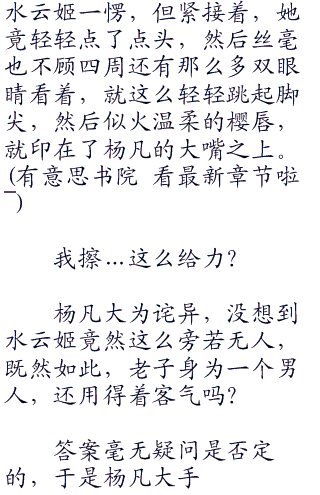 水云姬一愣，但紧接着，她
竟轻轻点了点头，然后丝毫
也不顾四周还有那么多双眼
睛看着，就这么轻轻跳起脚
尖，然后似火温柔的樱唇，
就印在了杨凡的大嘴之上。
(有意思书院 看最新章节啦
_)
我擦…这么给力？
杨凡大为诧异，没想到
水云姬竟然这么旁若无人，
既然如此，老子身为一个男
人，还用得着客气吗？
答案毫无疑问是否定
的，于是杨凡大手